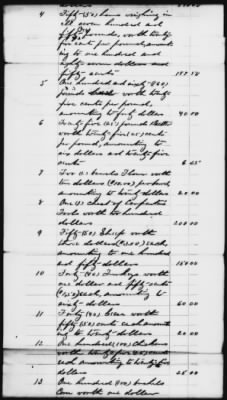 4 Fifty (50) hams weighing in
all seven hundred and
fifty pounds, worth twenty
five cents per pound, amounting
to one hundred and
eighty seven dollars and
fifty cents 187.50
5 One hundred and sixty (160)
pounds worth twenty
five cents per pound,
amounting to forty dollars 40.00
6 Twenty five (25) pounds
worth twenty five (25) cents
per pound, amounting to
six dollars and twenty five
cents 6.25
7 Two (2) barrels Flour worth
ten dollars ($10.00) per barrel
amounting to twenty dollars 20.00
8 One (1) chest of Carpenters
Tools worth two hundred
dollars 200.00
9 Fifty (50) Sheep worth
three dollars ($3.00) each,
amounting to one hundred
and fifty dollars 150.00
10 Forty (40) Turkeys worth
one dollar and fifty cents
($1.50) each, amounting to
sixty dollars 60.00
11 Forty (40) Geese worth
fifty (50) cents each amount
to twenty dollars 20.00
12 One hundred (100) chickens
worth twenty five (25) cents
each amounting to twenty five
dollars 25.00
13 One hundred (100) bushels
Corn worth one dollar